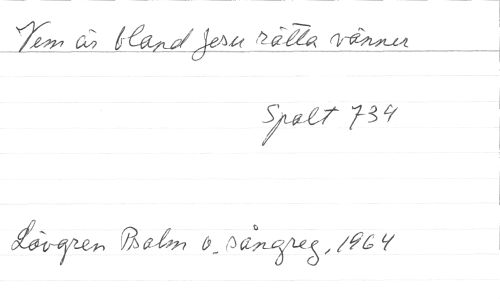 Vem är bland Jesu rätta vänner
Spalt 734
Lövgren Psalm o. sångreg. 1964